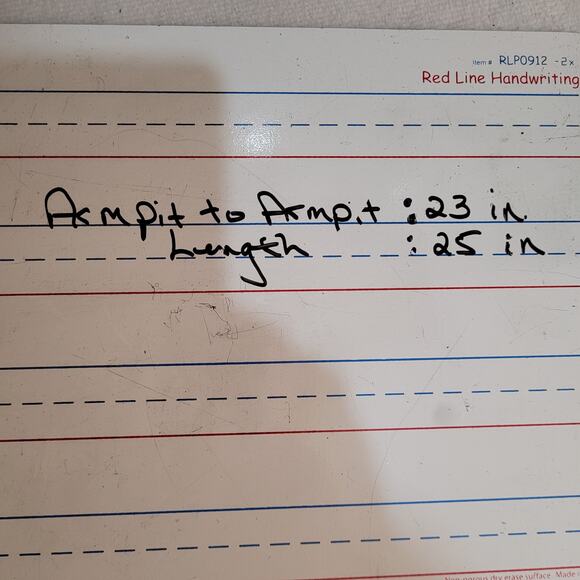 Item # RLP0912 -2x
Red Line Handwriting
Armpit to Armpit : 23 in.
Lenngth : 25 in
Non-porous dry erase surface. Made